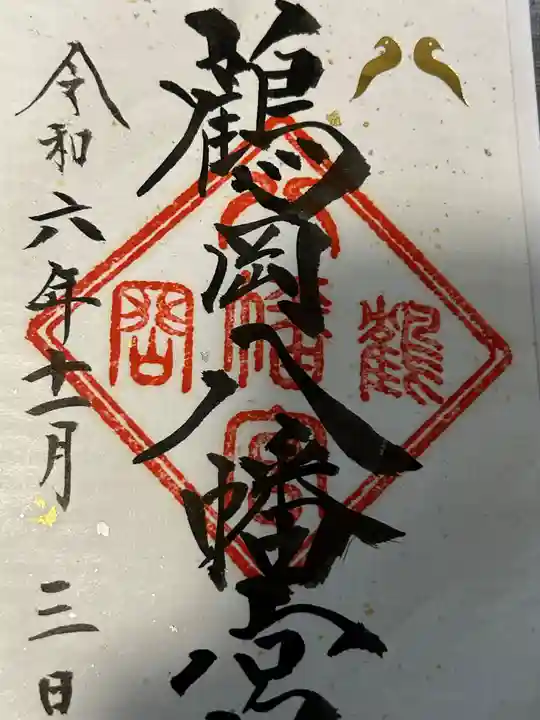 鶴岡八幡宮
鶴
八幡宮
岡
令和六年十一月三日